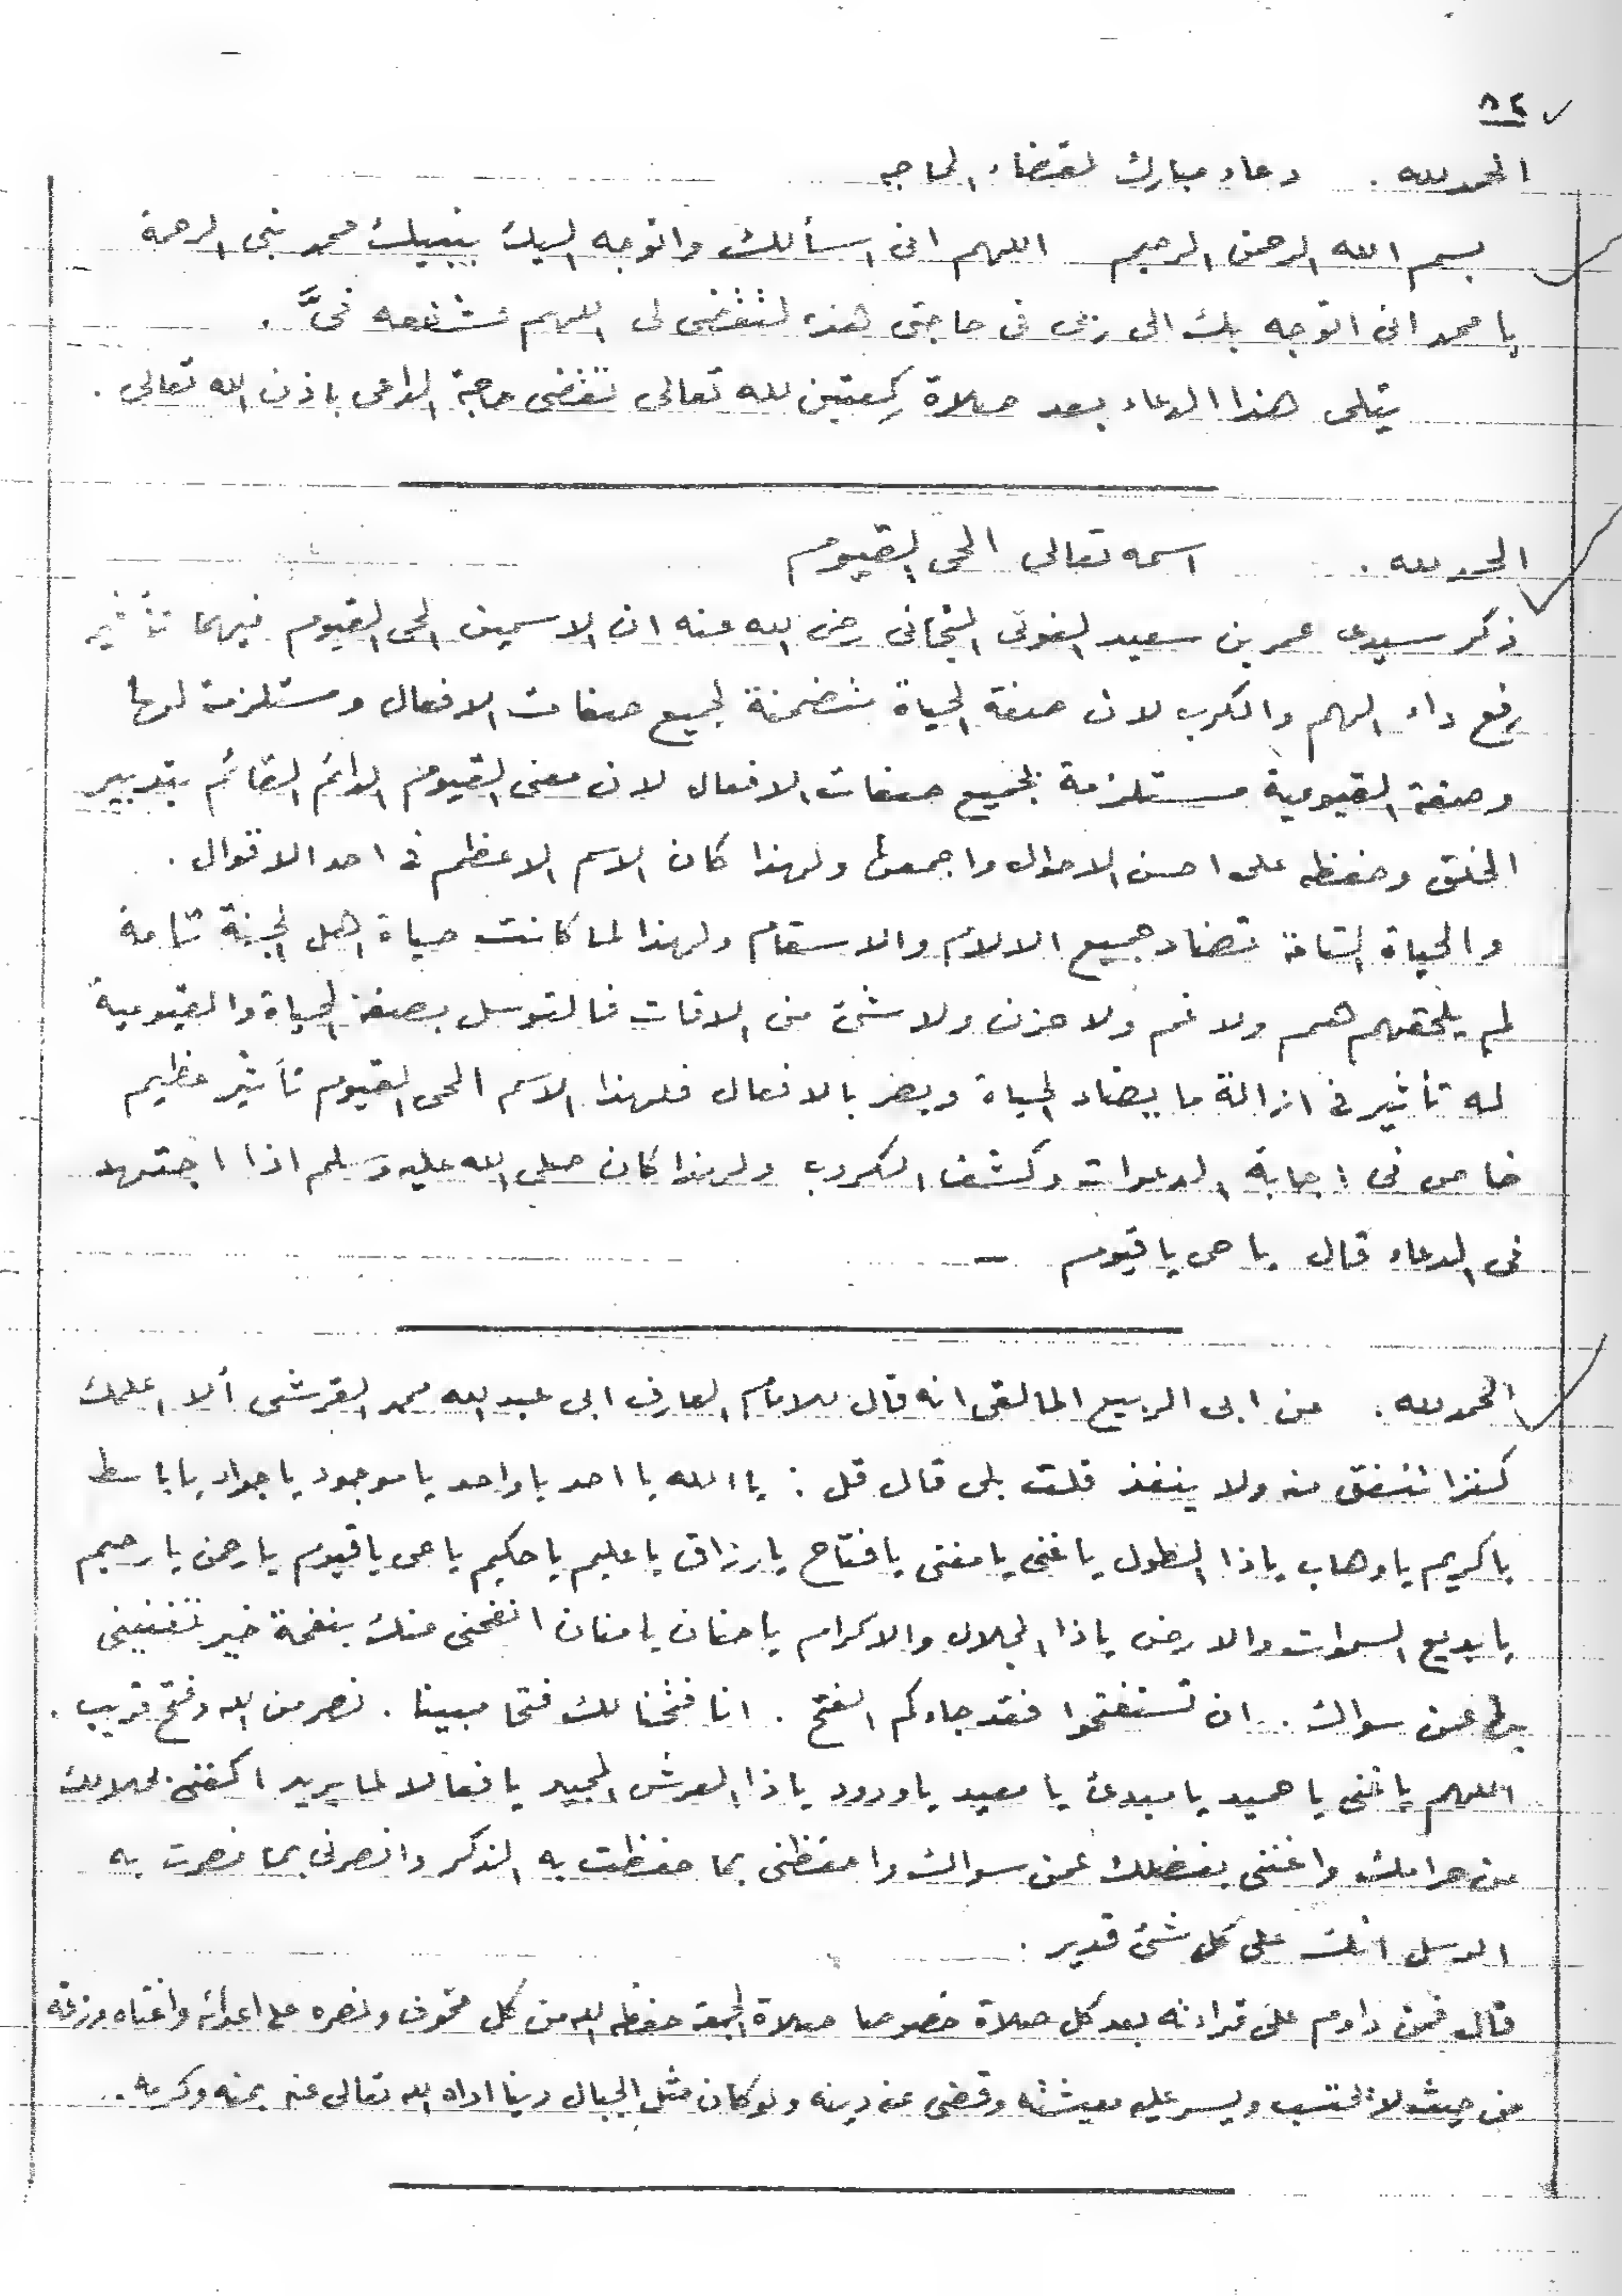 ٨٤
الحمد لله . دعاء مبارك لقضاء الحاجه
بسم الله الرحمن الرحيم اللهم انى اسألك واتوجه اليك بنبيك محمد نبى الرحمة
يا محمد انى اتوجه بك الى ربى فى حاجتى هذه لتقضى لى اللهم فشفعه فىَّ .
يتلى هذا الدعاء بعد صلاة ركعتين لله تعالى تقضى حاجة الداعى باذن الله تعالى .
الحمد لله . اسمه تعالى الحى القيوم
ذكر سيدى عمر بن سعيد الفوتى التجانى رضى الله عنه ان الاسمين الحى القيوم فيهما تأثير
رفع داء الهم والكرب لان صفة الحياة متضمنة لجميع صفات الافعال ومستلزمة لها
وصفة القيومية مستلزمة لجميع صفات الافعال لان معنى القيوم الدائم القائم بتدبير
الخلق وحفظه على احسن الاحوال واجمعها ولهذا كان الاسم الاعظم فى احد الاقوال .
والحياة التامة تضاد جميع الالام والاسقام ولهذا لما كانت حياة اهل الجنة تامة
لم يلحقهم هم ولا غم ولا حزن ولا شئ من الافات فالتوسل بصفة الحياة والقيومية
له تأثير فى ازالة ما يضاد الحياة ويضر بالافعال فلهذا الاسم الحى القيوم تأثير عظيم
خاص فى اجابة الدعوات وكشف الكروب ولهذا كان صلى الله عليه وسلم اذا اجتهد
فى الدعاء قال يا حى يا قيوم –
الحمد لله . عن ابى الربيع المالقى انه قال للامام العارف ابى عبد الله محمد القرشى ألا اعلمك
كنزا تنفق منه ولا ينفذ قلت بلى قال قل : يا الله يا احد يا واحد يا موجود يا جواد يا باسط
يا كريم يا وهاب يا ذا الطول يا غنى يا مغنى يا فتاح يا رزاق يا عليم يا حكيم يا حى يا قيوم يا رحمن يا رحيم
يا بديع السموات والارض يا ذا الجلال والاكرام يا حنان يا منان انفحنى منك بنفحة خير تغنينى
بها عمن سواك . ان تستفتحوا فقد جاءكم الفتح . انا فتحنا لك فتحا مبينا . نصر من الله وفتح قريب .
اللهم يا غنى يا حميد يا مبدئ يا معيد يا ودود يا ذا العرش المجيد يا فعالا لما يريد اكفنى بحلالك
عن حرامك واغننى بفضلك عمن سواك واحفظنى بما حفظت به الذكر وانصرنى بما نصرت به
الرسل انك على كل شئ قدير .
قال فمن داوم على قراءته بعد كل صلاة خصوصا صلاة الجمعة حفظه الله من كل مخوف ونصره على اعدائه واغناه ورزقه
من حيث لا يحتسب ويسر عليه معيشته وقضى عنه دينه ولو كان مثل الجبال دينا اداه الله تعالى عنه بمنه وكرمه .